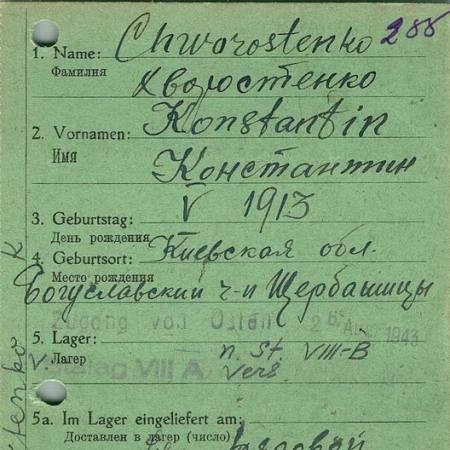 Chworostenko 288
1. Name:
Фамилия
Хворостенко
Konstantin
2. Vornamen:
Имя
Константин
V 1913
3. Geburtstag:
День рождения
Киевская обл.
4. Geburtsort:
Место рождения
Богуславский Щербашицы
Zugang von Osten 26. Aug. 1943
5. Lager:
Лагер
n. St. VIII-B
Stalag VIII A
vers.
5a. Im Lager eingeliefert am:
Доставлен в лагер (число)